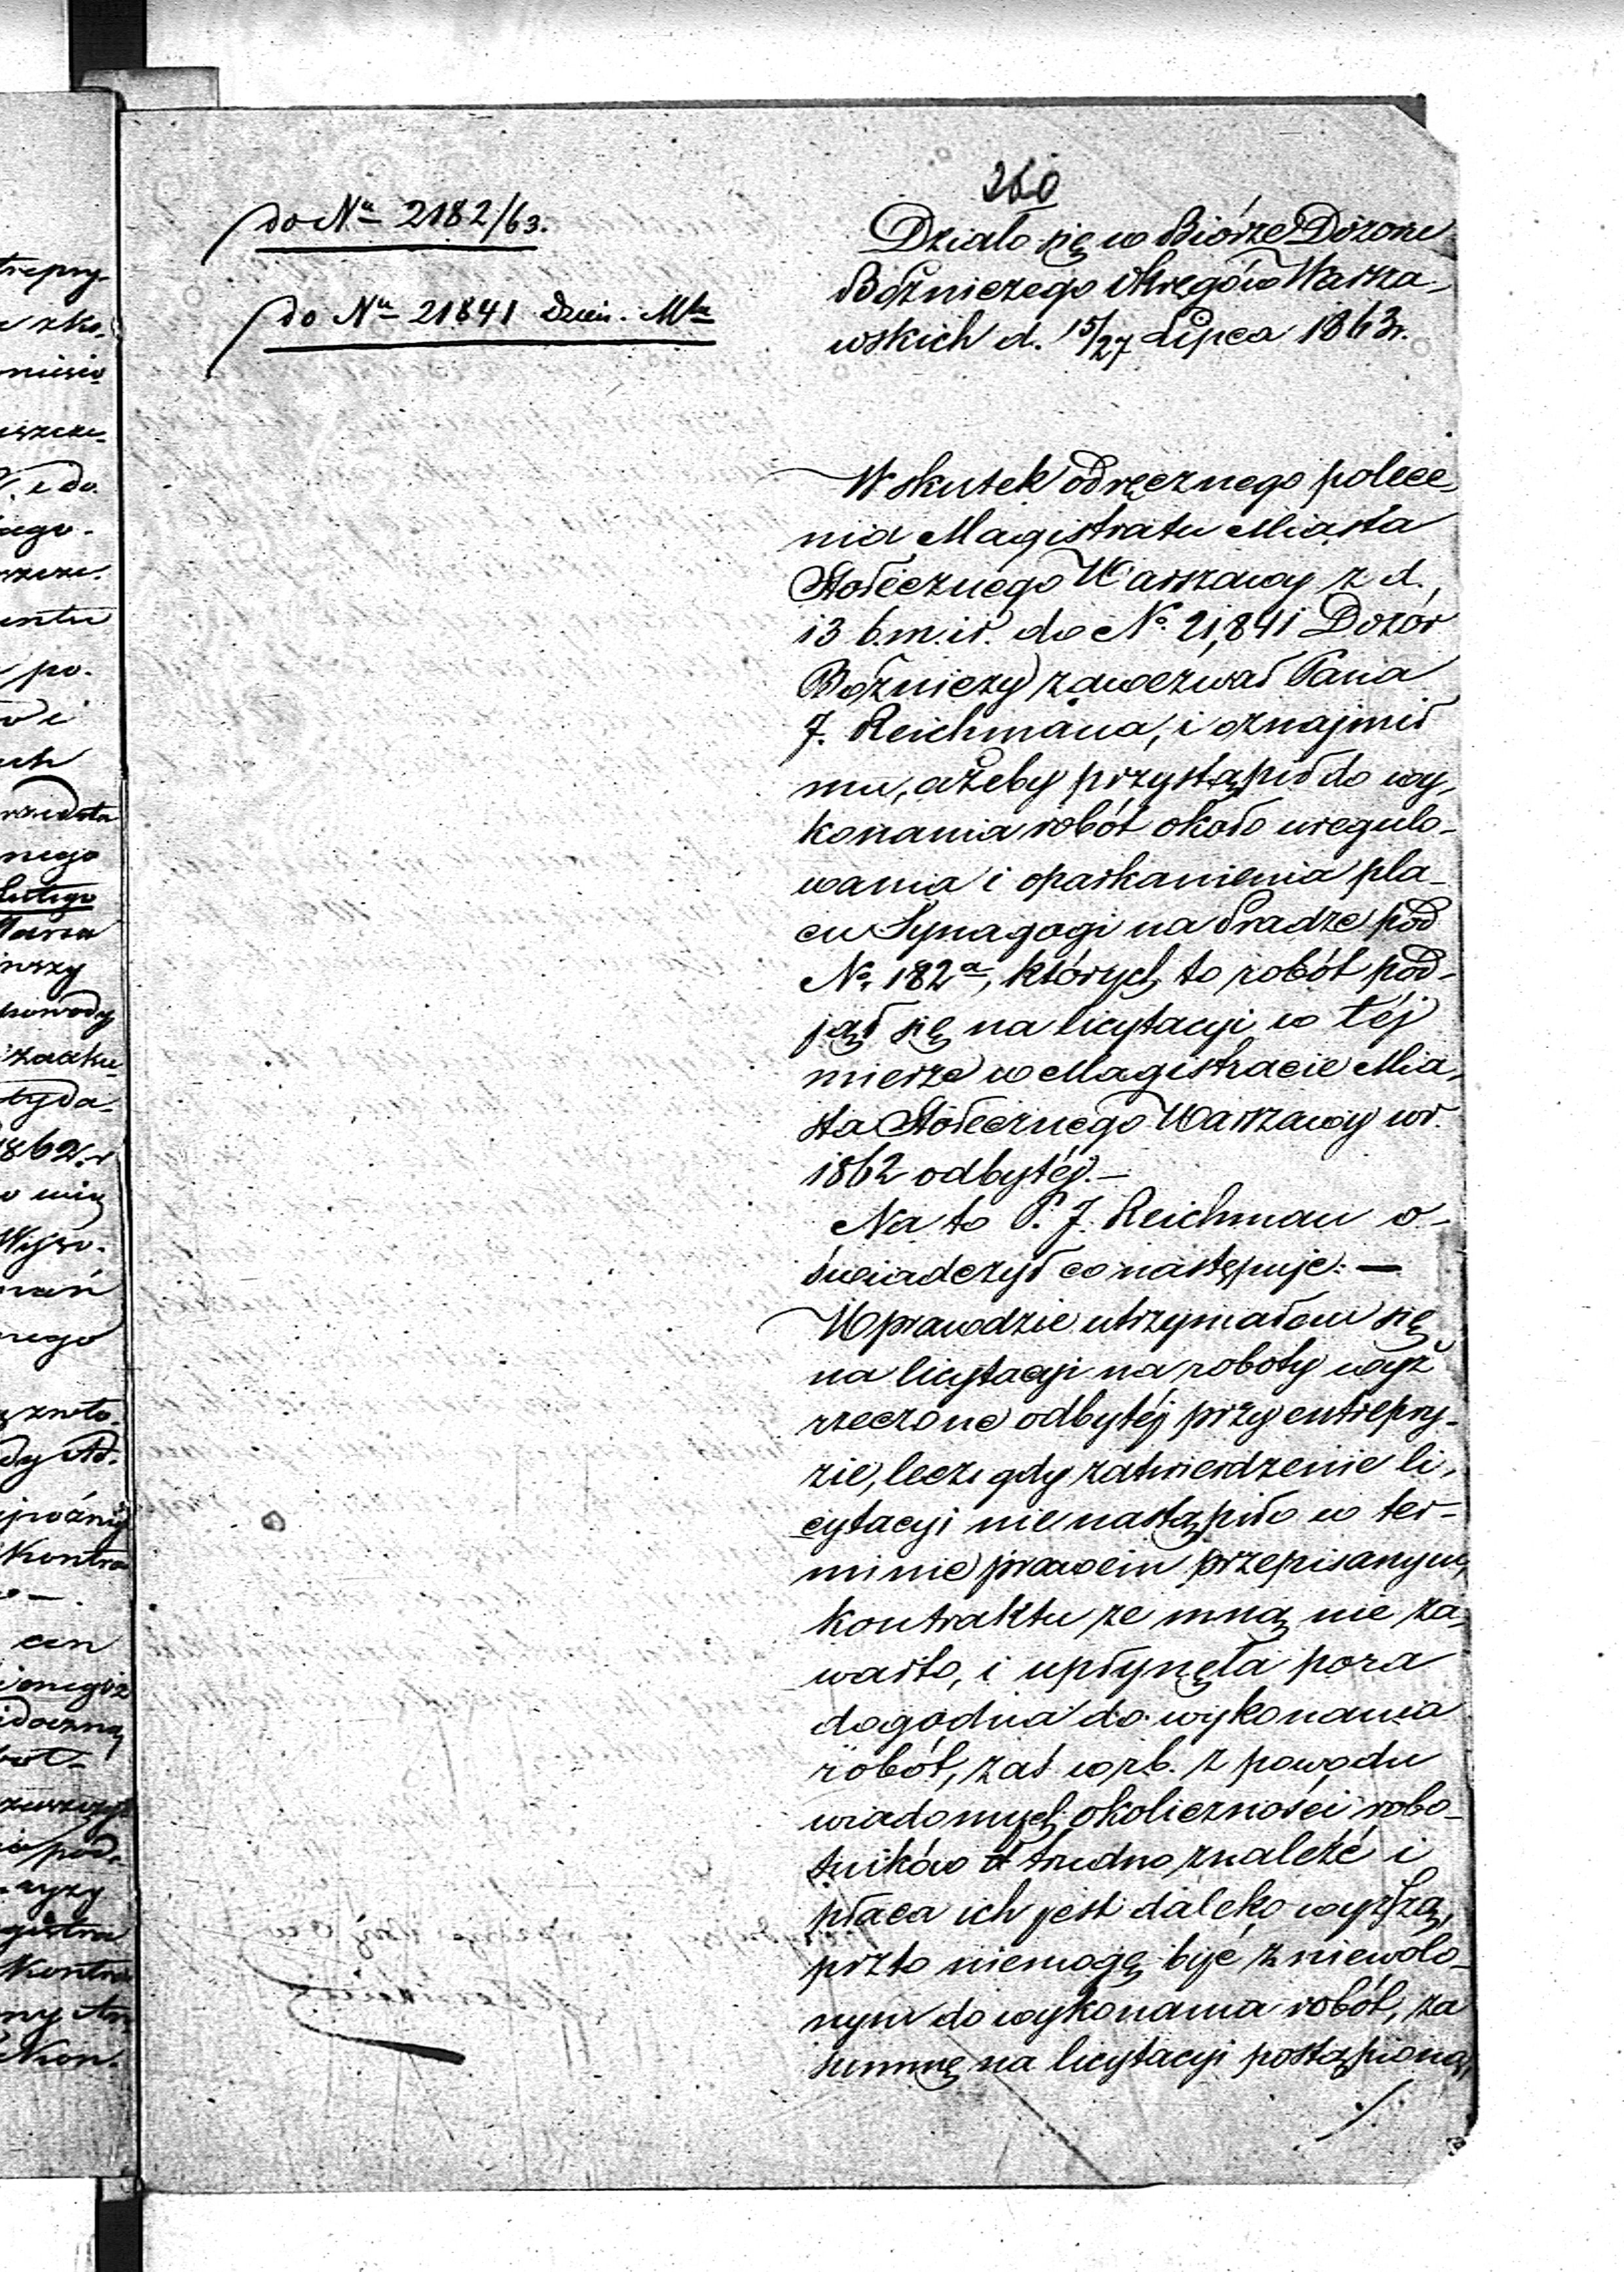 260
do Nu 2182/63.
do Nu 21841 Dzien. Mtu
Działo się w Biórze Dozoru
Bóżniczego Okręgów Warsza-
wskich d. 15/27 Lipca 1863 r.
W skutek odręcznego polece-
nia Magistratu Miasta
Stołecznego Warszawy z d.
13 b.m.ir. do No 21,841 Dozór
Bóżniczy zawezwał Pana
J. Reichmana, i oznajmił
mu, ażeby przystąpił do wy-
konania robót około uregulo-
wania i oparkanienia pla-
cu Synagogi na Pradze pod
No 182a, których to robót pod-
jął się na licytacyi w téj
mierze w Magistracie Mia-
sta Stołecznego Warszawy w r.
1862 odbytéj.—
Na to P. J. Reichman o-
świadczył co następuje: —
Wprawdzie utrzymałem się
na licytacyi na roboty wyż
rzeczone odbytéj przy entrepry-
zie, lecz gdy zatwierdzenie li-
cytacyi nie nastąpiło w ter-
minie prawem przepisanym,
kontraktu ze mną nie za-
warto, i upłynęła pora
dogodna do wykonania
robót, zaś w r.b. z powodu
wiadomych okoliczności robo-
tników trudno znaleźć i
płaca ich jest daleko wyższą,
przto niemogę być zniewolo-
nym do wykonania robót, za
summę na licytacyi postąpioną,
./.